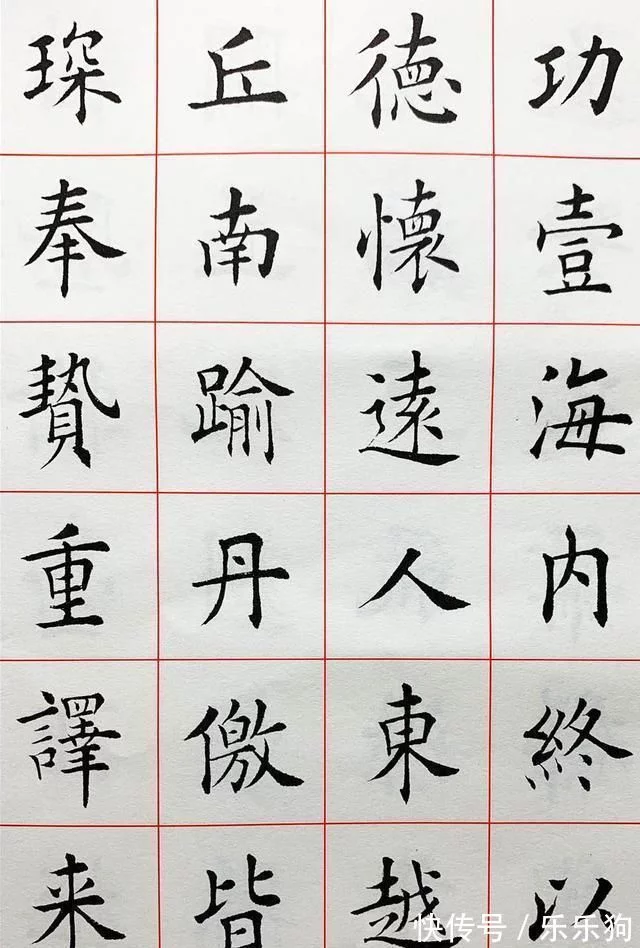 功壹海内終以
德懷遠人東越
丘南踰丹儌皆
琛奉贄重譯来
快传号 / 乐乐狗